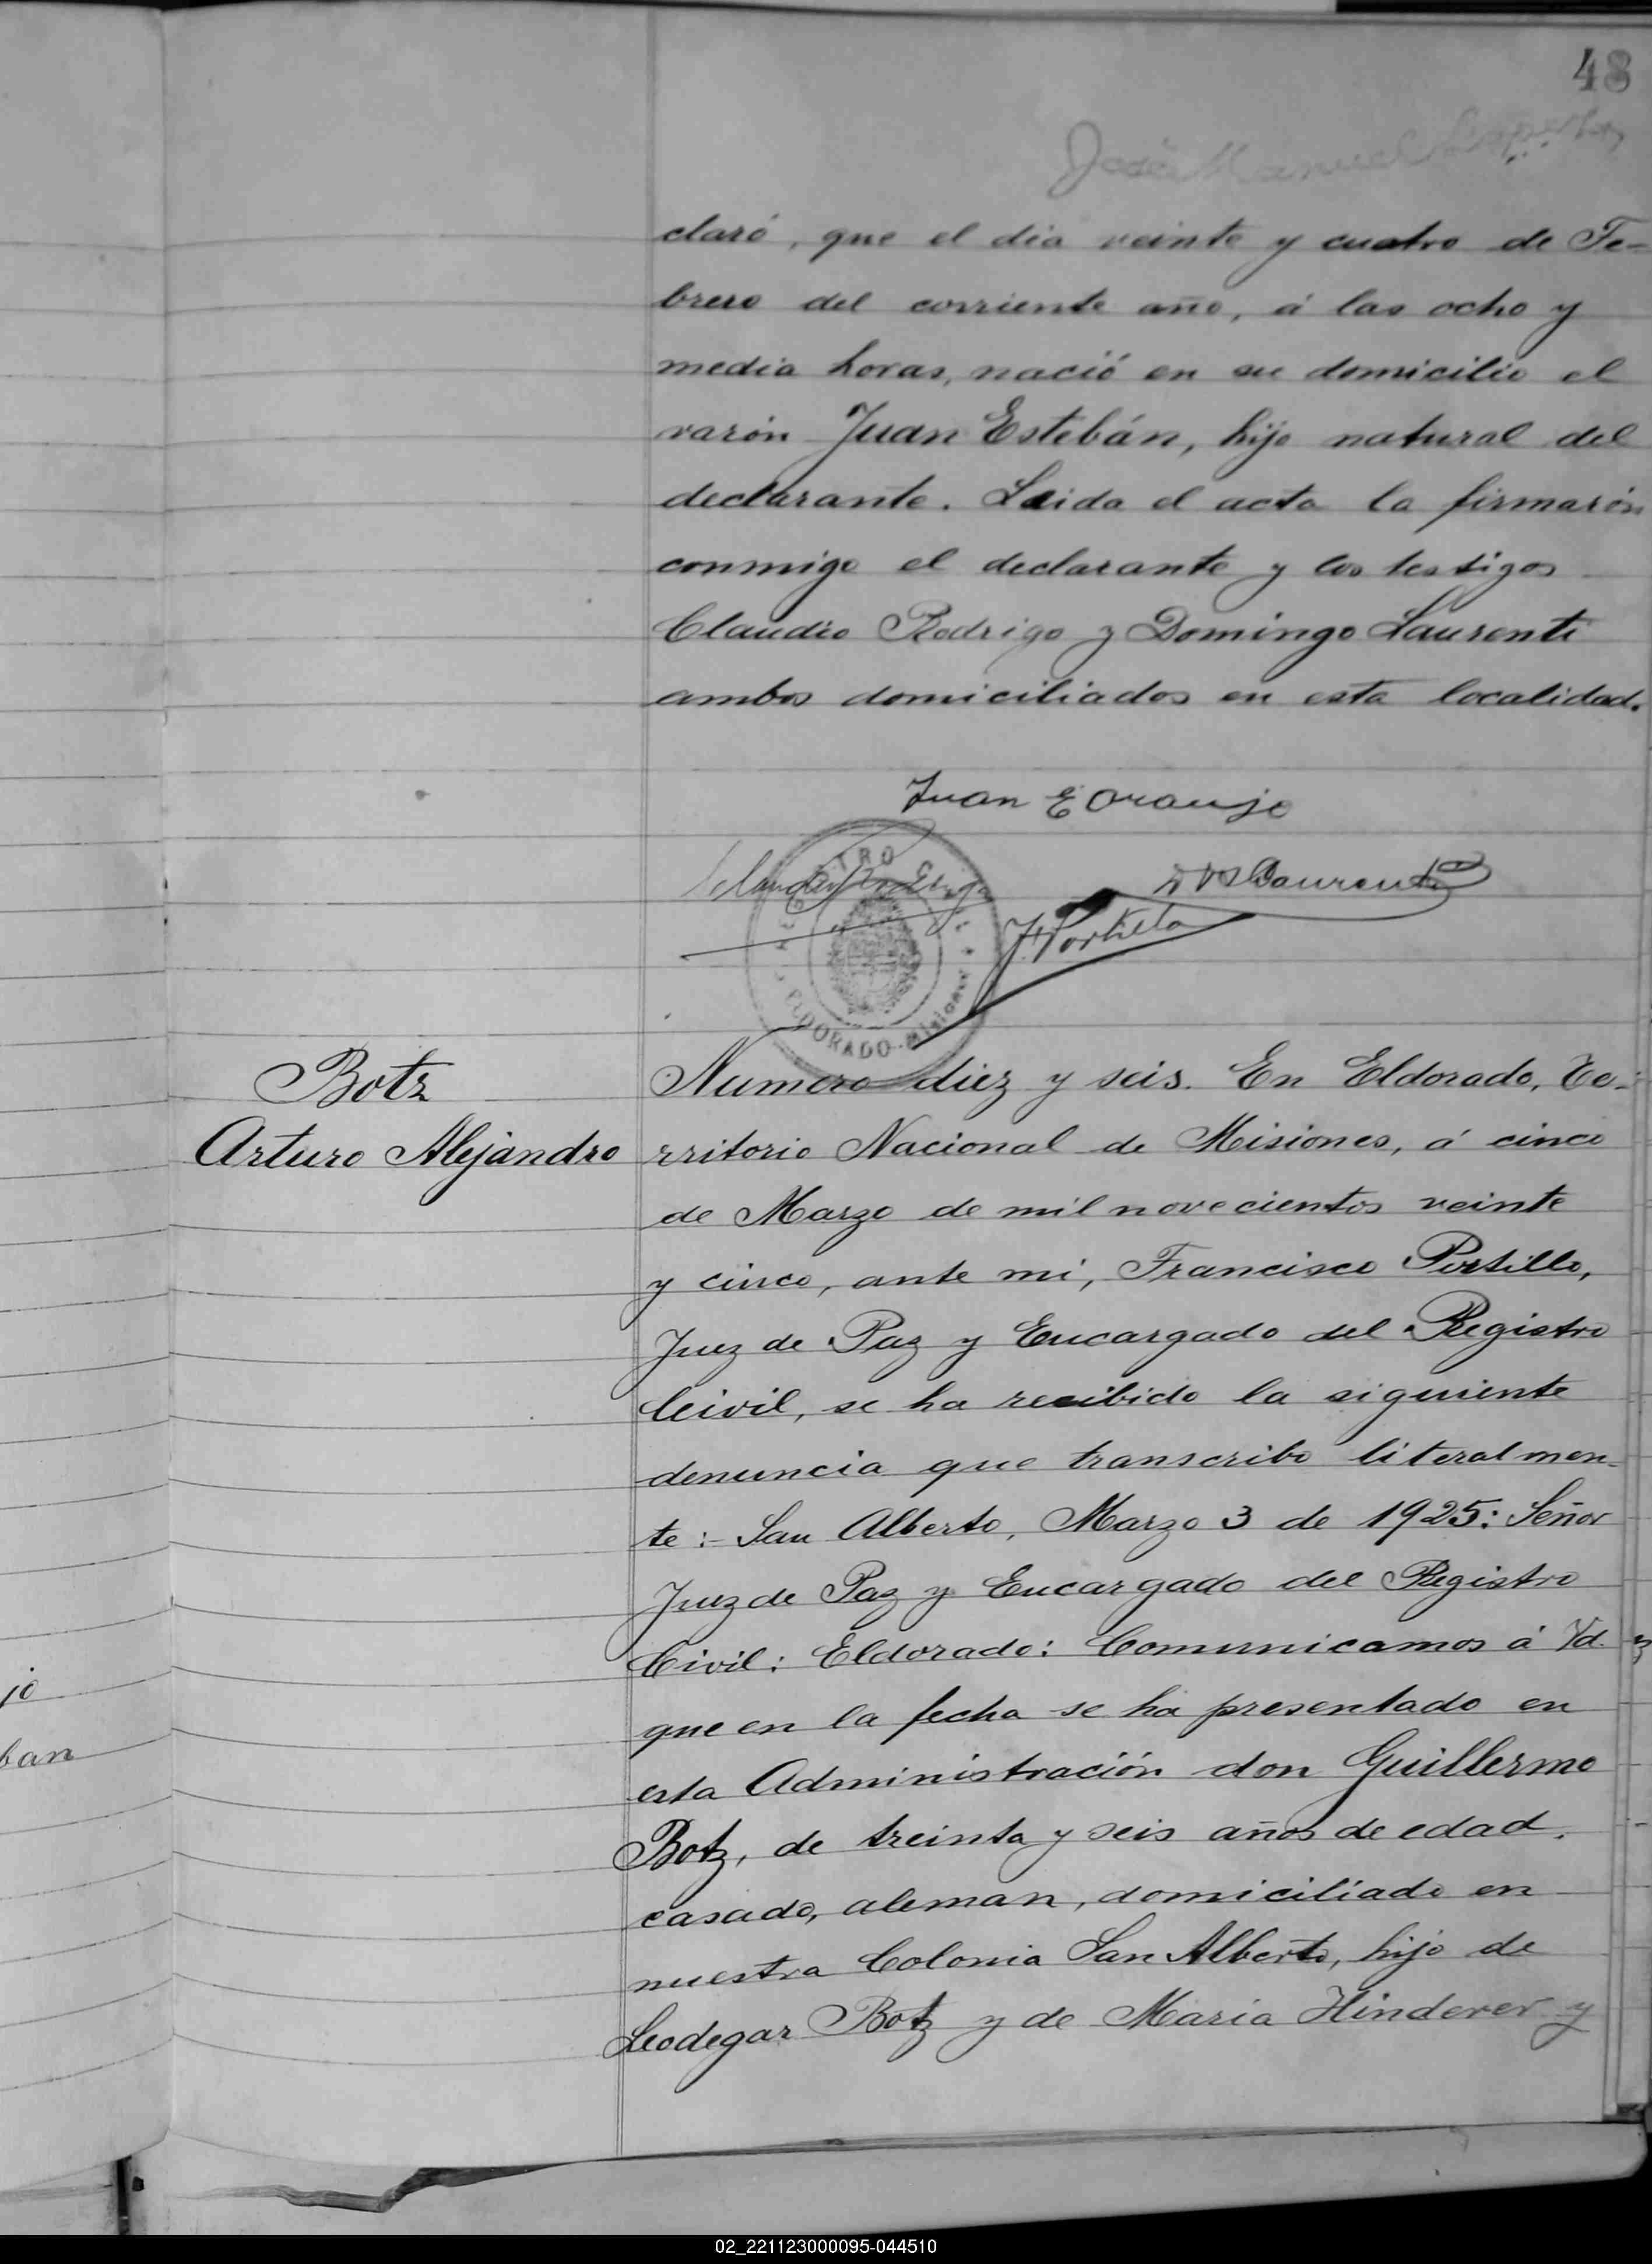 48
José Manuel
claró, que el dia veinte y cuatro de Fe-
brero del corriente año, á las ocho y
media horas, nació en su domicilio el
varón Juan Estebán, hijo natural del
declarante. Leida el acta la firmarón
conmigo el declarante y los testigos
Claudio Rodrigo y Domingo Laurenti
ambos domiciliados en esta localidad.
Juan E Oraujo
Laurenti
F. Portillo
ELDORADO - Misiones
Botz
Arturo Alejandro
Numero diez y seis. En Eldorado, Te-
rritorio Nacional de Misiones, á cinco
de Marzo de mil novecientos veinte
y cinco, ante mi, Francisco Portillo,
Juez de Paz y Encargado del Registro
Civil, se ha recibido la siguiente
denuncia que transcribo literalmen-
te:- San Alberto, Marzo 3 de 1925: Señor
Juez de Paz y Encargado del Registro
Civil: Eldorado: Comunicamos á Vd.
que en la fecha se ha presentado en
esta Administración don Guillermo
Botz, de treinta y seis años de edad,
casado, aleman, domiciliado en
nuestra Colonia San Alberto, hijo de
Leodegar Botz y de Maria Hinderer y
jo
ban
02_221123000095-044510